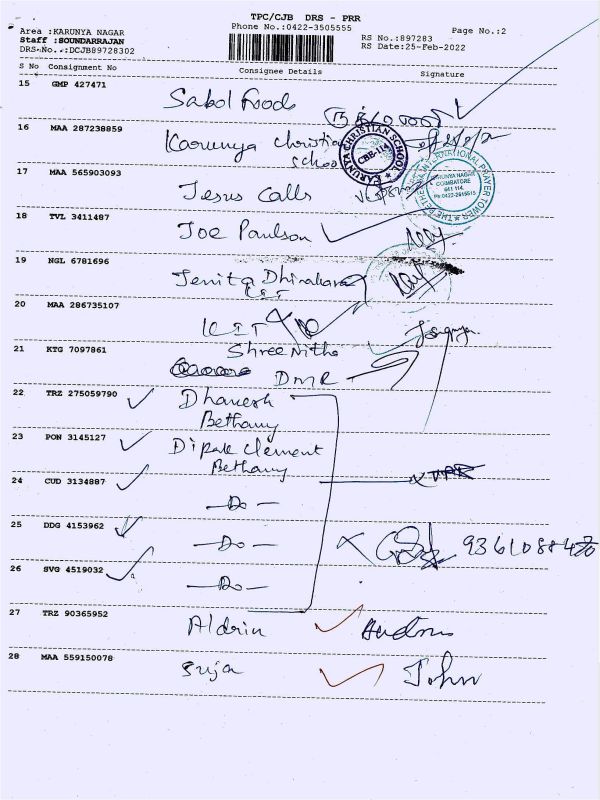 TPC/CJB DRS - PRR
Phone No.:0422-3505555
Page No.:2
Area :KARUNYA NAGAR
Staff :SOUNDARRAJAN
DRS-No..:DCJB89728302
RS No.:897283
RS Date:25-Feb-2022
S No Consignment No Consignee Details Signature
15 GMP 427471
Sabol Foods
16 MAA 287238859
Karunya Christian
School
KARUNYA CHRISTIAN SCHOOL
CBE-114
17 MAA 565903093
Jesus Calls
THE BETHESDA INTERNATIONAL PRAYER TOWER
KARUNYA NAGAR
COIMBATORE
641 114
18 TVL 3411487
Joe Paulson
19 NGL 6781696
Jenita Dhinakaran
KIT
20 MAA 286735107
KIT
21 KTG 7097861
Shree Nitha
DMR
22 TRZ 275059790
Dhanesh
Bethany
23 PON 3145127
Dipak Clement
Bethany
24 CUD 3134887
— Do —
25 DDG 4153962
— Do —
26 SVG 4519032
— Do —
27 TRZ 90365952
Aldrin
28 MAA 559150078
Suja John